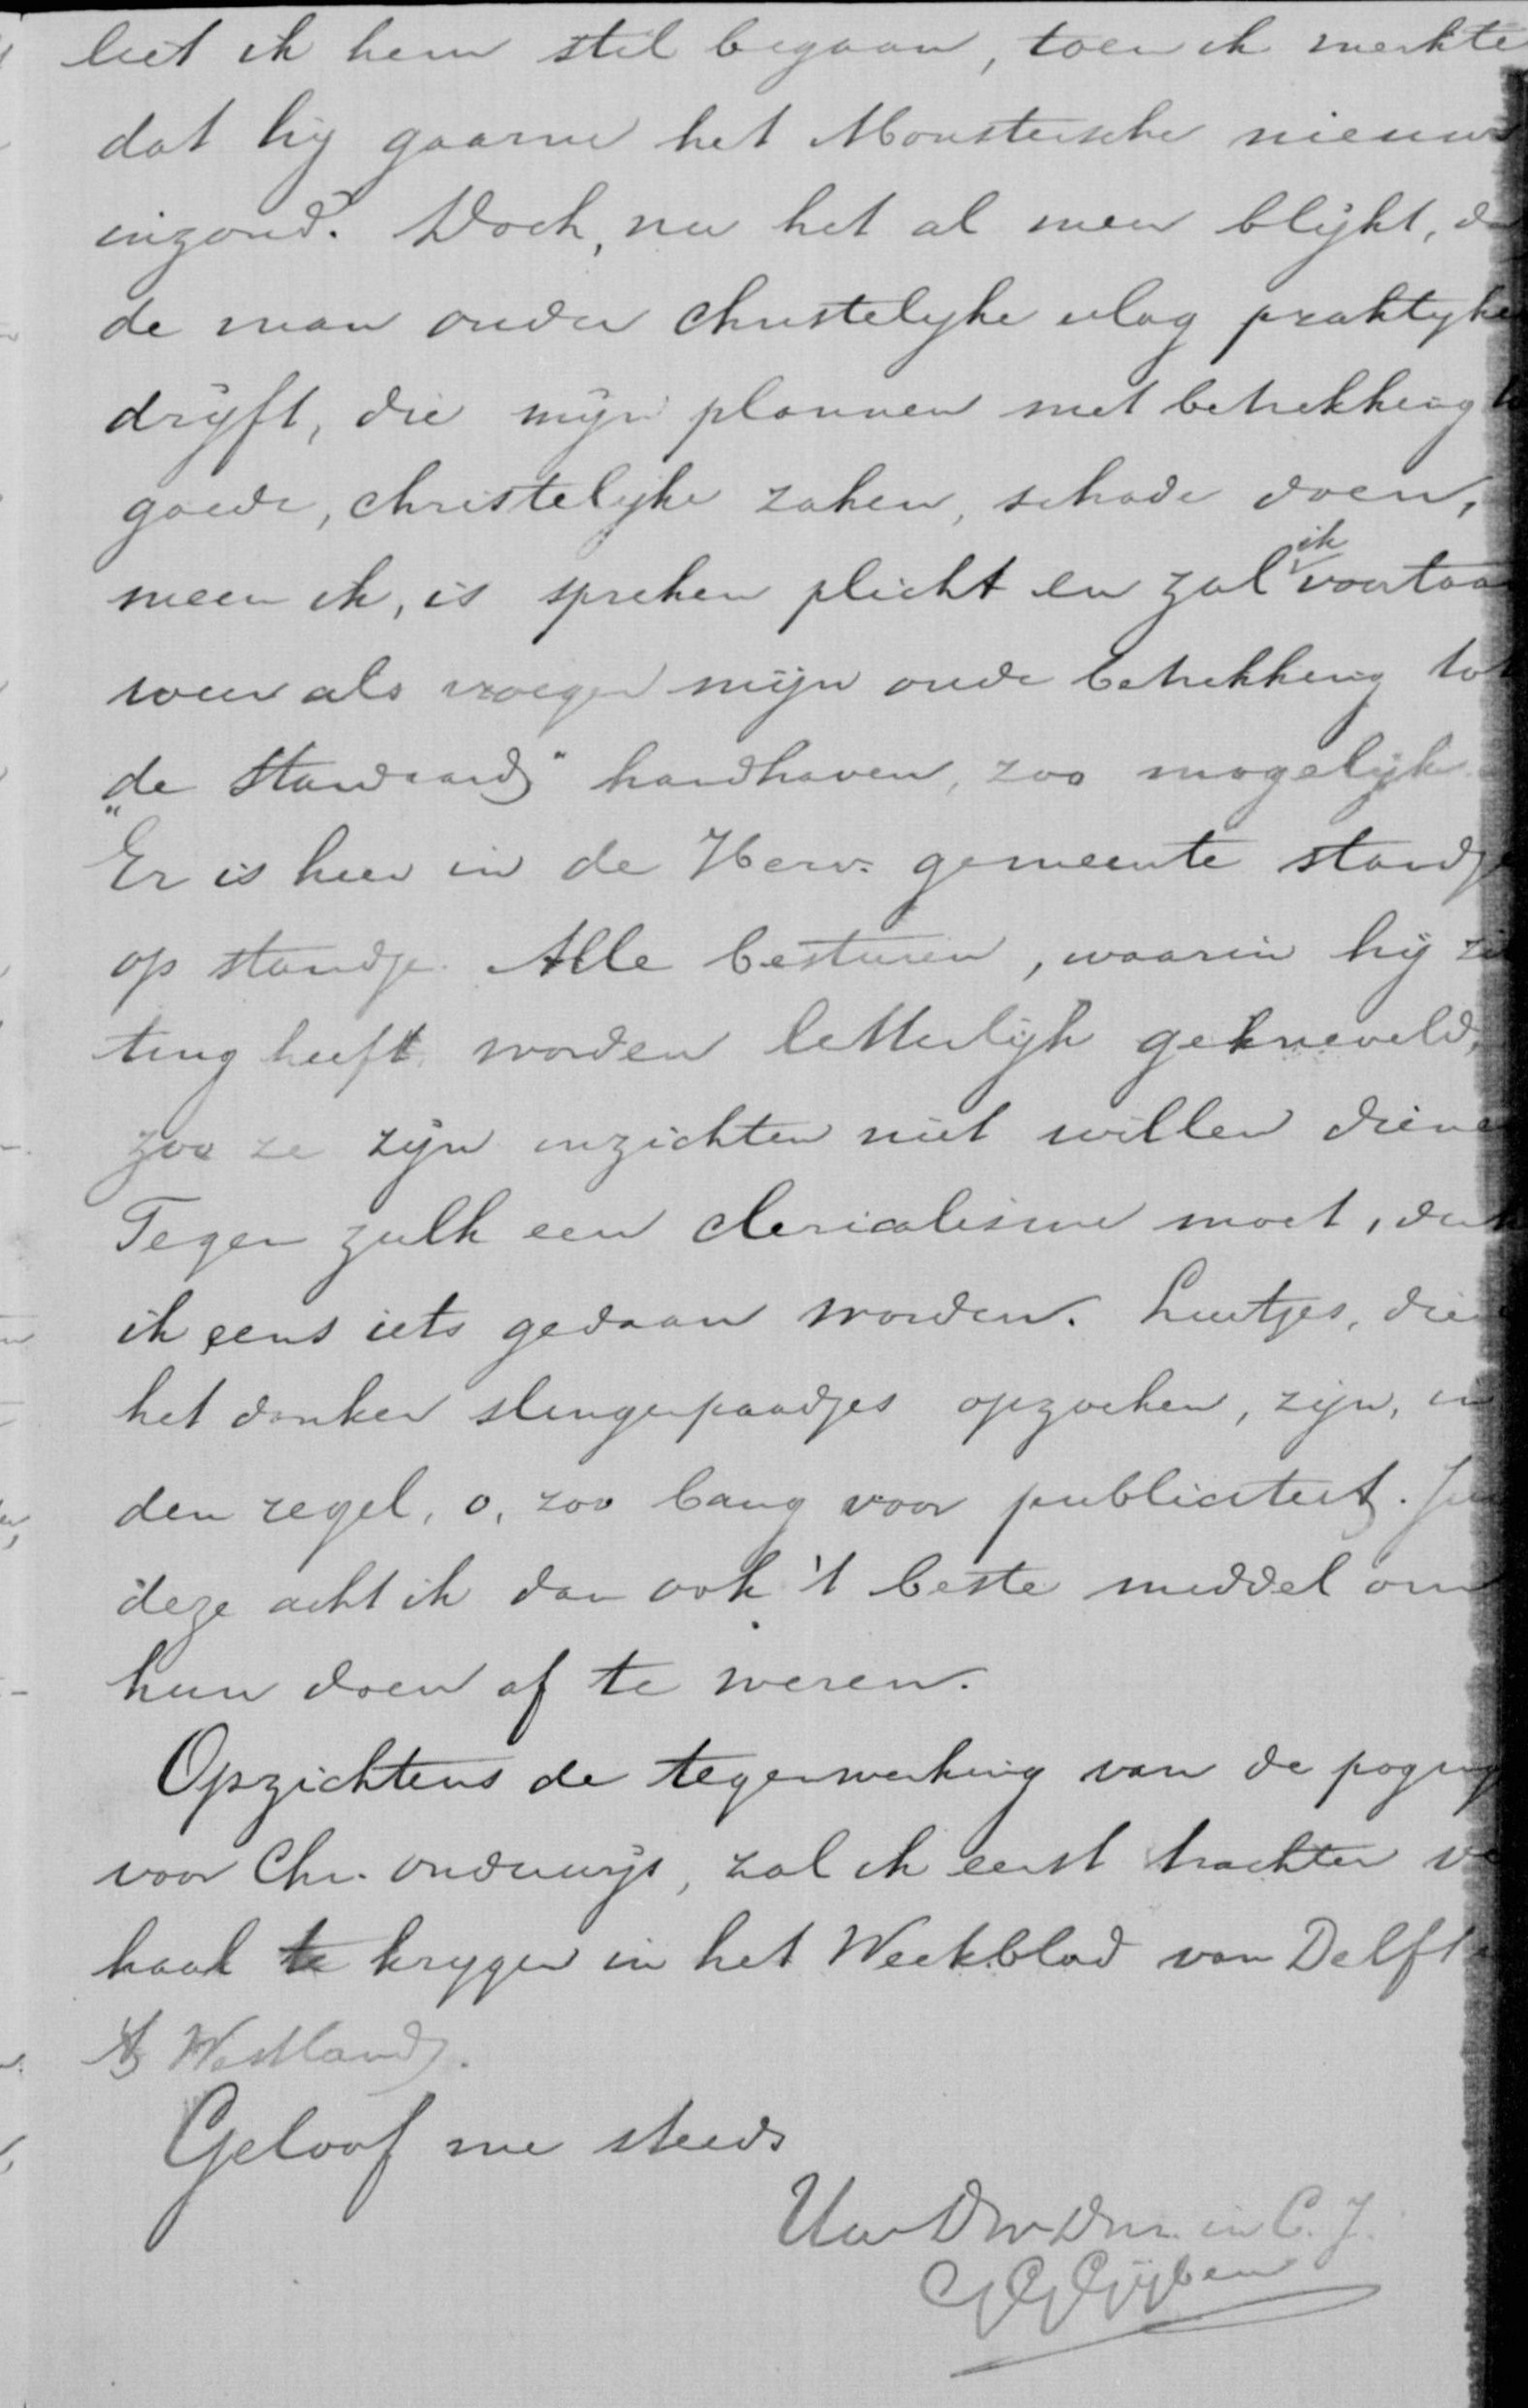 liet ik hem stil begaan, toen ik merkte
dat hij gaarne het Monstersche nieuws
inzond. Doch, nu het al meer blijkt, da
de man onder christelyke vlag praktyke
dryft, die mijn plannen met betrekking to
goede, christelyke zaken, schade doen,
meen ik, is spreken plicht en zal ik voortaa
weer als vroeger mijn oude betrekking tot
„de Standaard" handhaven, zoo mogelijk.
Er is hier in de Herv. gemeente standje
op standje. Alle besturen, waarin hij zit
ting heeft worden letterlijk gekneveld,
zoo ze zijn inzichten niet willen diene
Tegen zulk een clericalisme moet, denk
ik eens iets gedaan worden. Luitjes, die in
het donker slingerpaadjes opzoeken, zijn, in
den regel, o, zoo bang voor publiciteit. Juis
deze acht ik dan ook 't beste middel om
hun doen af te weren.
Opzichtens de tegenwerking van de poging
voor Chr. onderwijs, zal ik eerst trachten ve
haal te krygen in het Weekblad van Delft
& Westland.
Geloof me steeds
Uw Dw Dnr. in C. J.